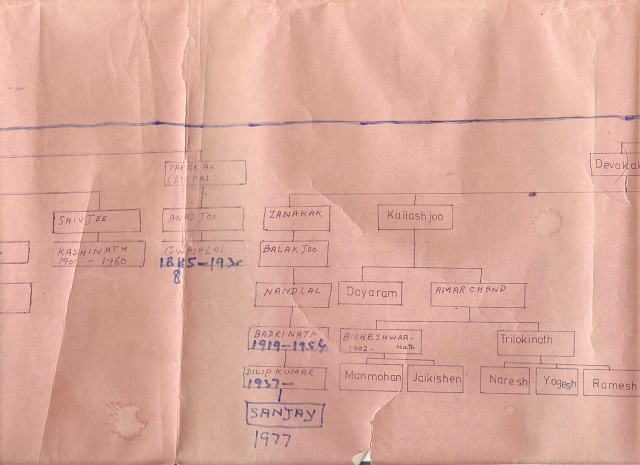 Devakak
SHIVJEE
ANANDJOO
ZANAKAK
Kailashjoo
KASHINATH
1901 - 1960
GWASHLAL
BALAKJOO
NANDLAL
Dayaram
AMARCHAND
BADRINATH
1919-1954
BISHESHWAR-
1902- nath
Trilokinath
DILIPKUMAR
1937-
Manmohan
Jaikishen
Naresh
Yogesh
Ramesh
SANJAY
1977